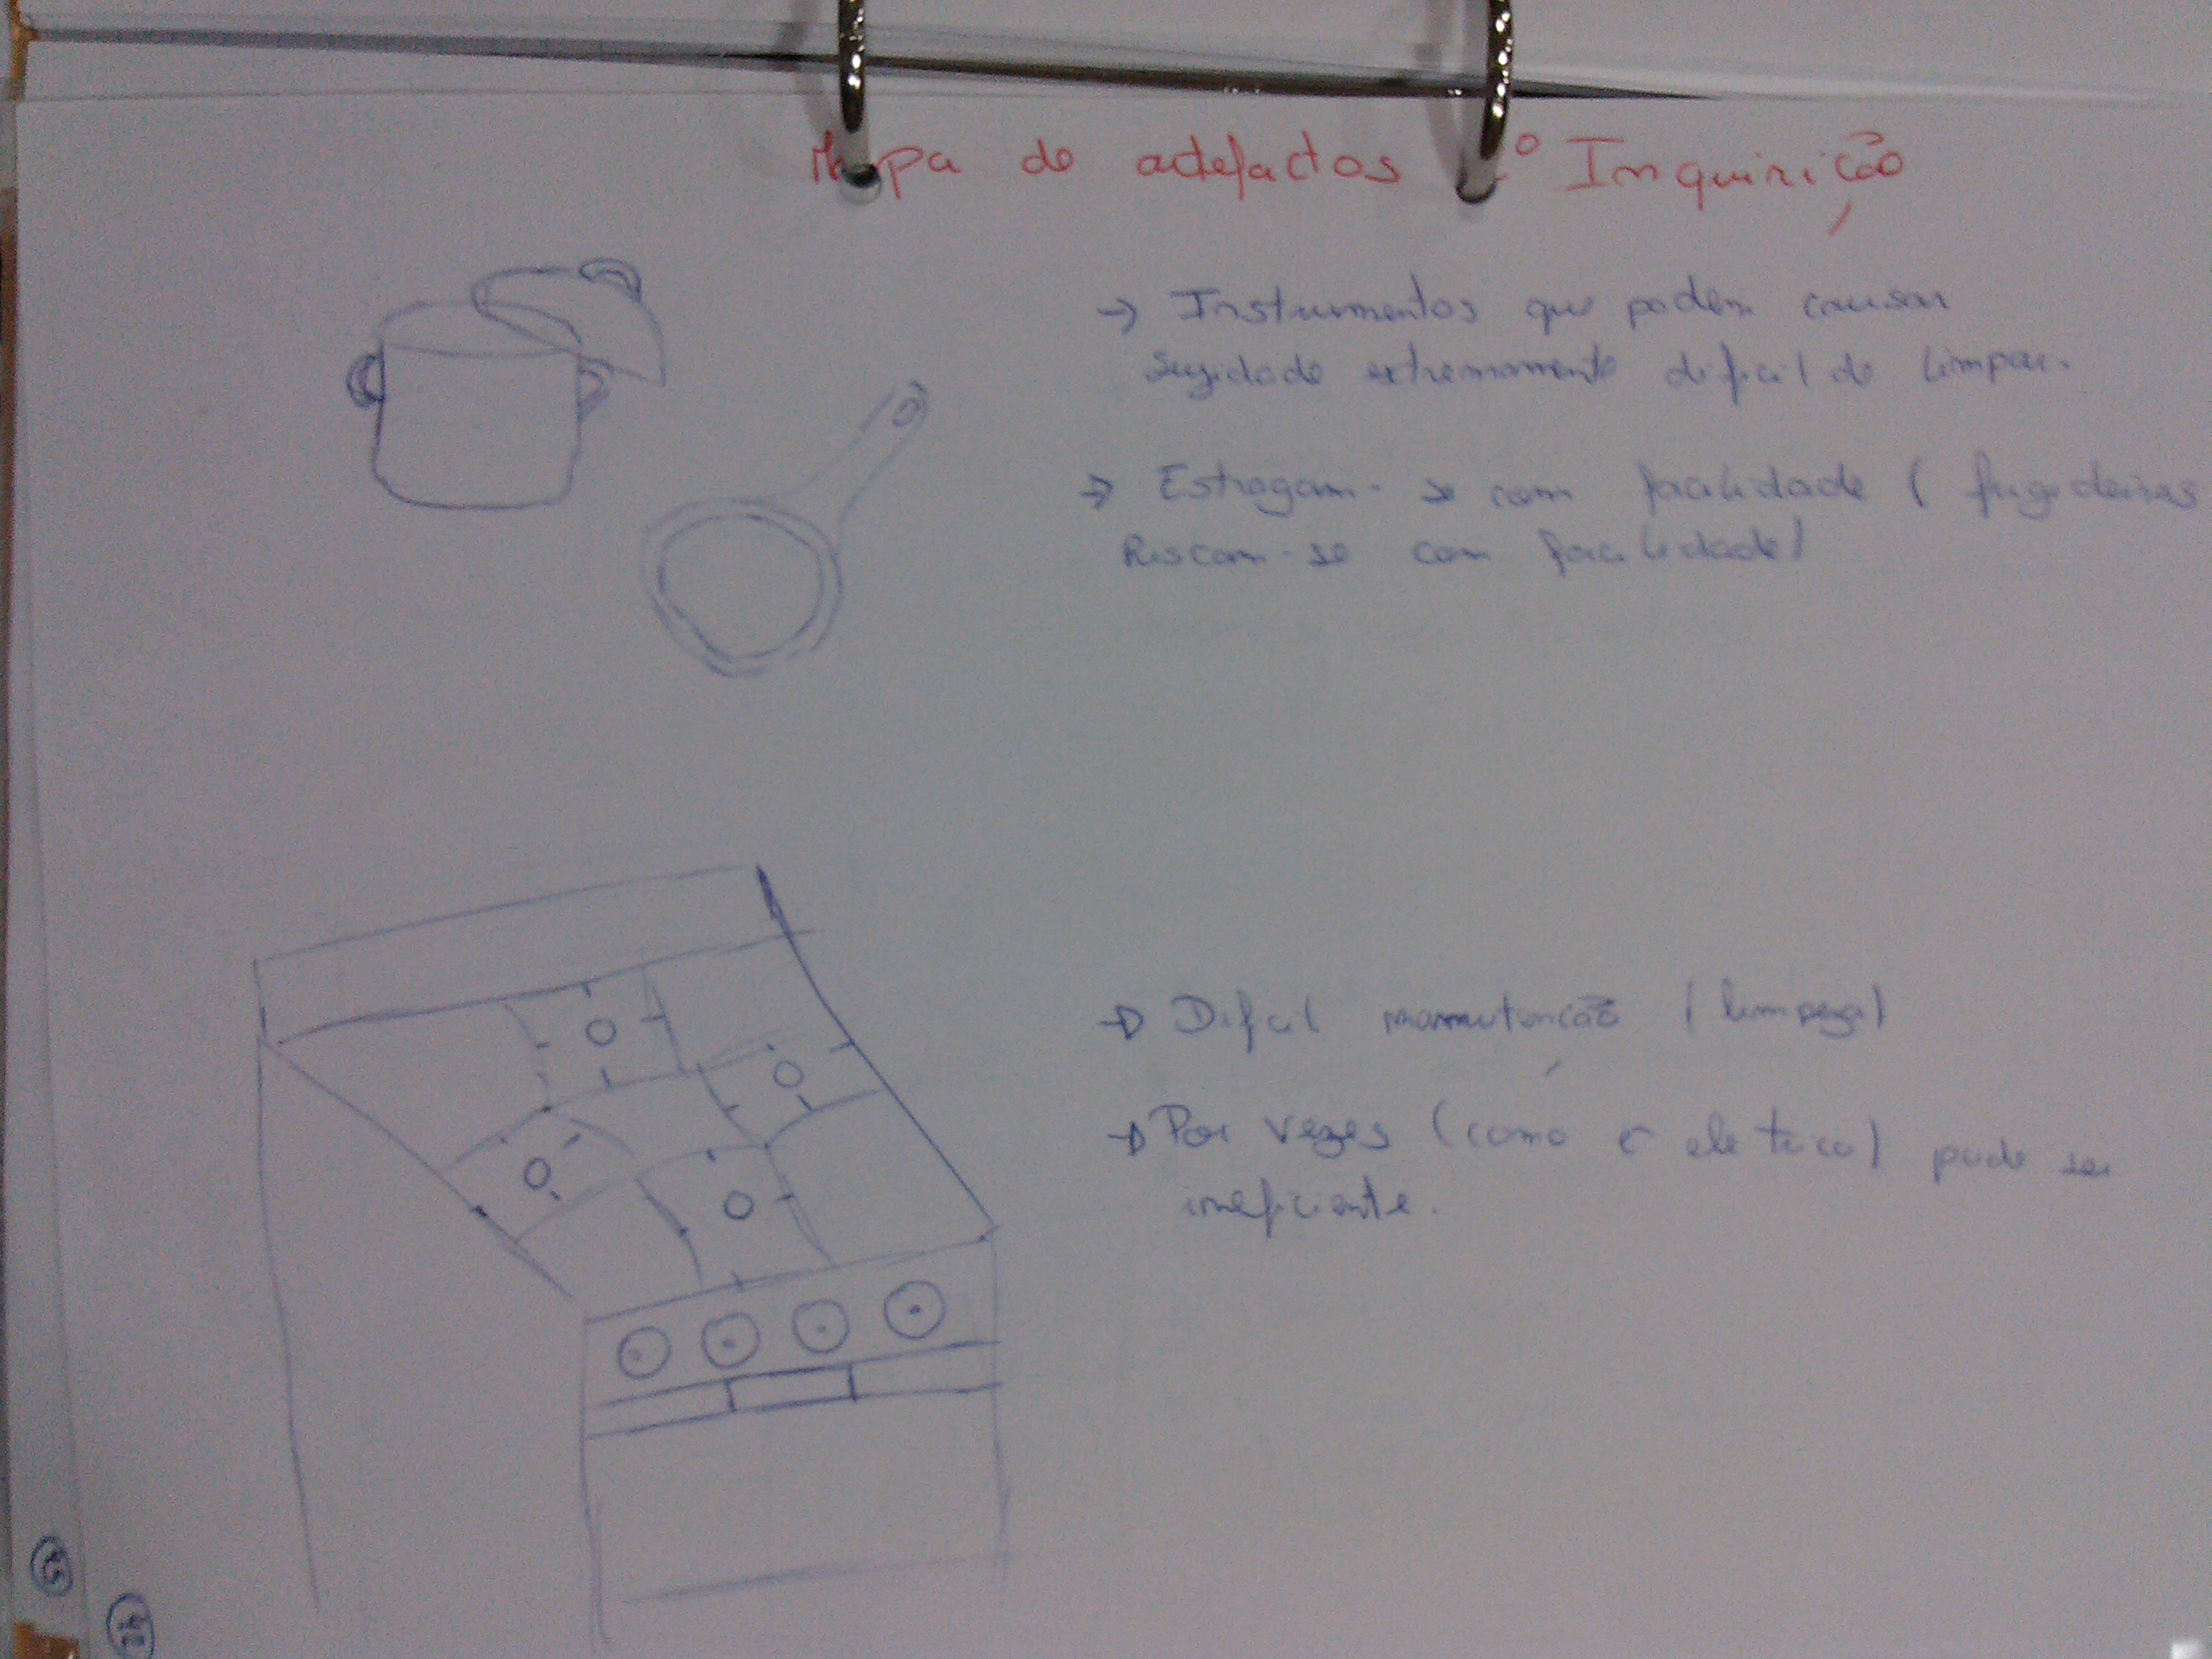 Mapa de adefactos º Inquirição
→ Instrumentos que podem causar
sugidade extremamente dificil de limpar.
→ Estragam-se com facilidade ( frigideiras
Riscam-se com facilidade)
→ Dificil manutenção (limpeza)
→ Por vezes (como é eletrico) pode ser
ineficiente.